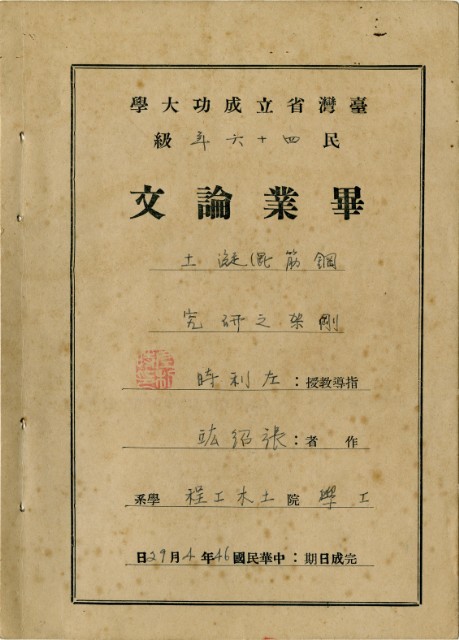 臺灣省立成功大學
民四十六年級
畢業論文
鋼筋混凝土
剛架之研究
指導教授：左利時
作者：張紹竑
工學院土木工程學系
完成日期：中華民國46年4月29日